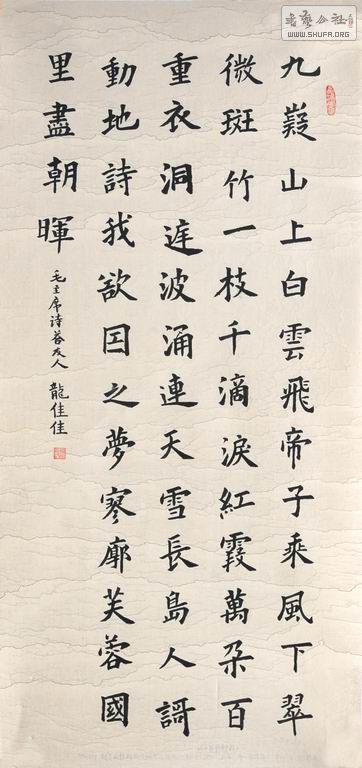 九嶷山上白雲飛帝子乘風下翠
微斑竹一枝千滴淚紅霞萬朵百
重衣洞庭波涌連天雪長島人謌
動地詩我欲因之夢寥廓芙蓉國
里盡朝暉
毛主席诗答友人
龍佳佳
书艺公社
WWW.SHUFA.ORG